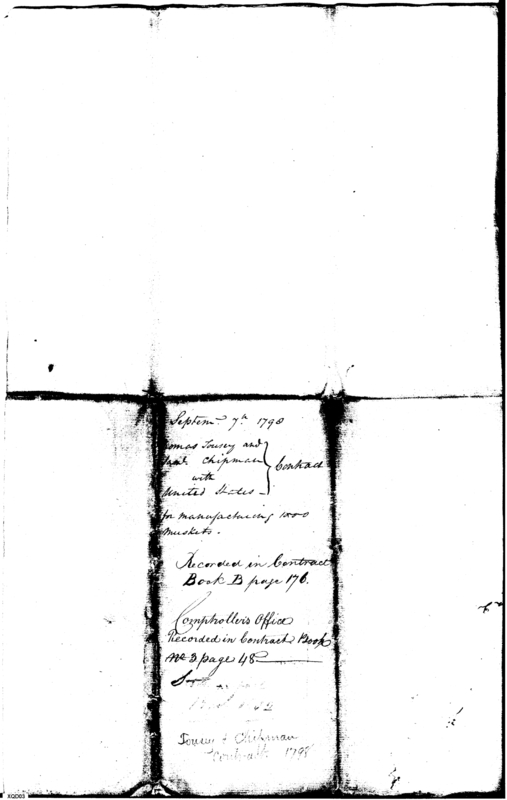 Septem 7th 1798
omas Tousey and
Chipman } Contract
with
United States
for manufacturing 1000
muskets.
Recorded in Contract
Book B page 176.
Comptroller's Office
Recorded in Contract Book
No 3 page 48
Tousey & Chipman
Contract 1798
XQD03